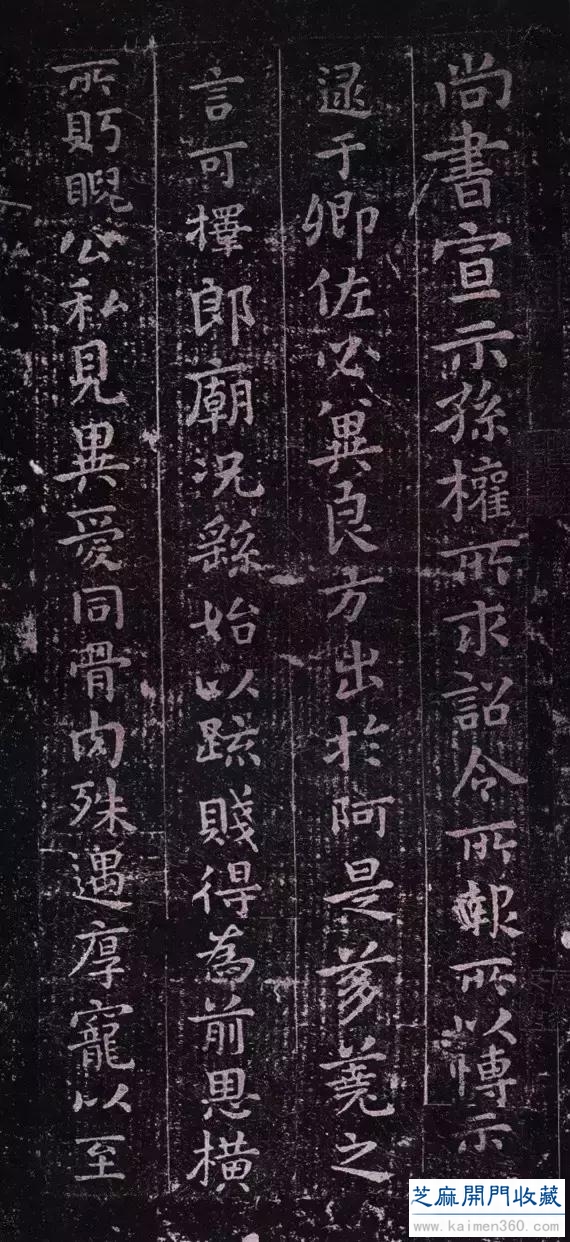 尚書宣示孫權所求詔令所報所以博示
逮于卿佐必冀良方出於阿是芻蕘之
言可擇郎廟況繇始以疏賤得為前思橫
所眄睨公私見異愛同骨肉殊遇厚寵以至
芝麻開門收藏
www.kaimen360.com